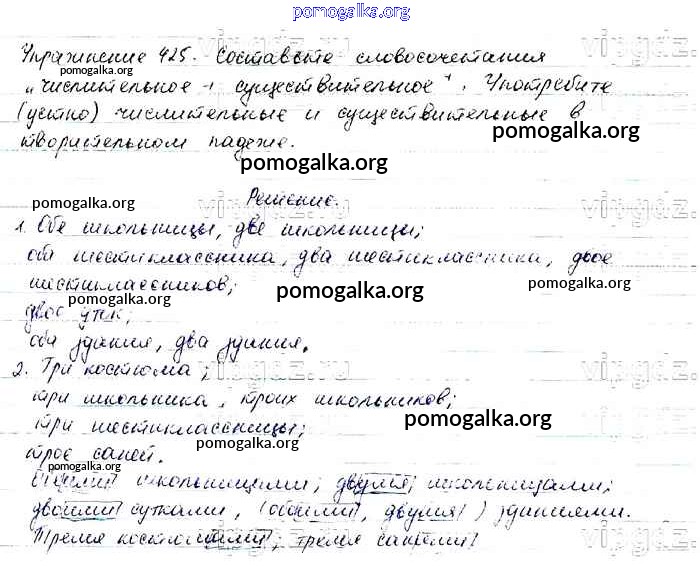 pomogalka.org
Упражнение 425. Составьте словосочетания
pomogalka.org
„числительное + существительное“. Употребите
(устно) числительные и существительные в
творительном падеже.
pomogalka.org
pomogalka.org
pomogalka.org
Решение.
vipgdz.ru
1. Обе школьницы, две школьницы;
оба шестиклассника, два шестиклассника, двое
шестиклассников;
pomogalka.org
pomogalka.org
pomogalka.org
двое суток;
оба здания, два здания.
vipgdz.ru
2. Три костюма;
pomogalka.org
три школьника, троих школьников;
три шестиклассницы;
pomogalka.org
pomogalka.org
трое саней.
pomogalka.org
школьницами; двумя школьницами;
двоими сутками, (обоими, двумя) зданиями.
Тремя костюмами; тремя санями